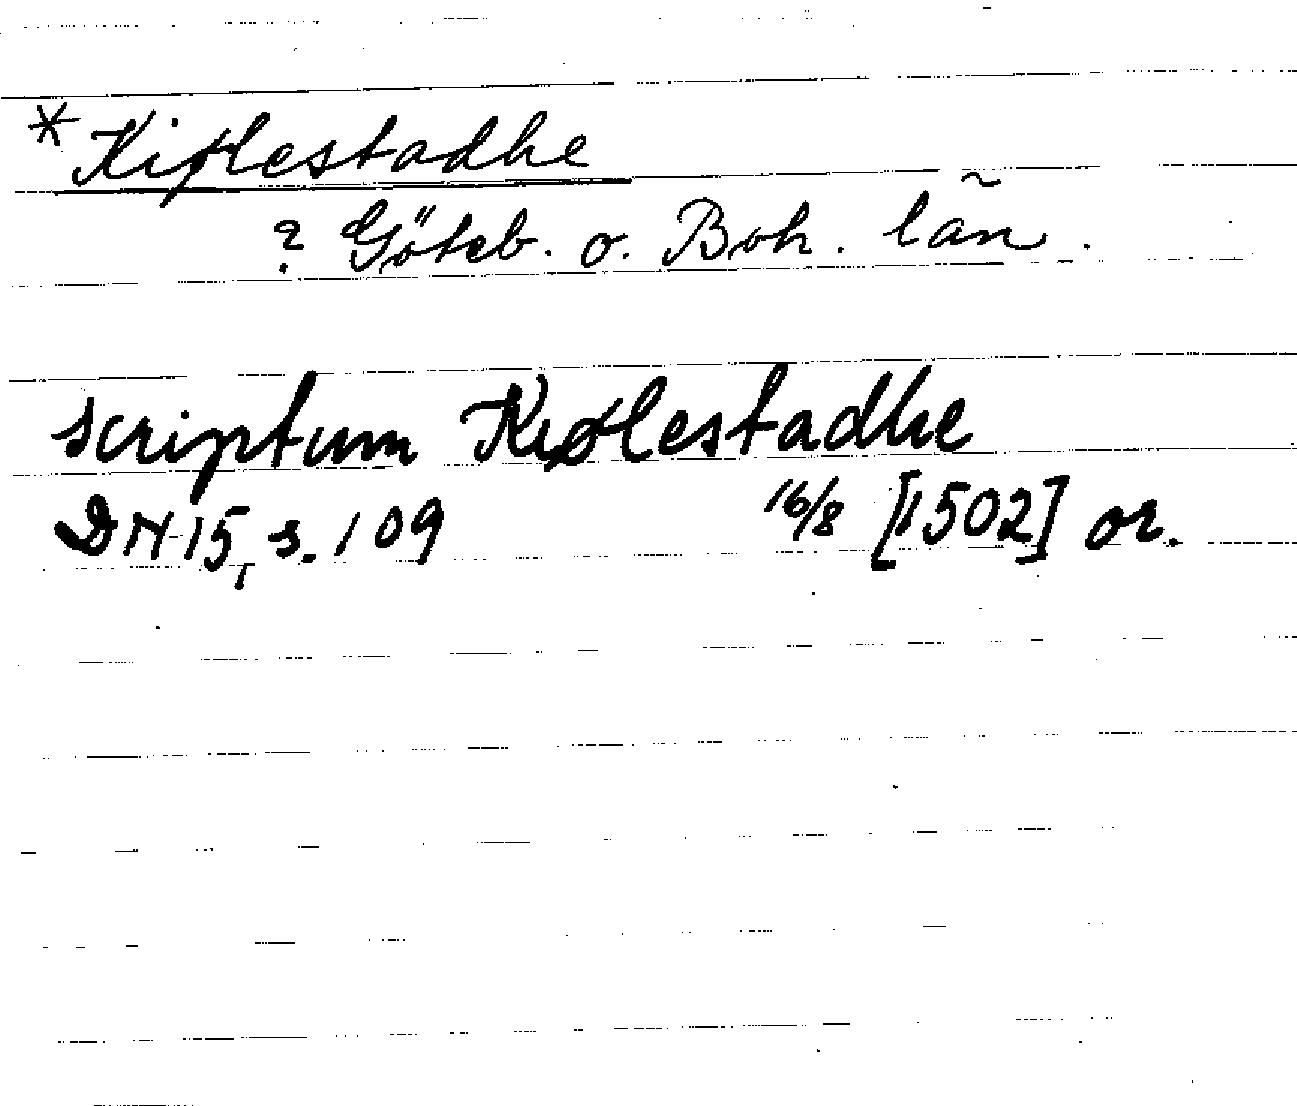 * Kiølestadhe
? Göteb. o. Boh. län.
scriptum Kiølestadhe
DN 15, s. 109 16/8 [1502] or.